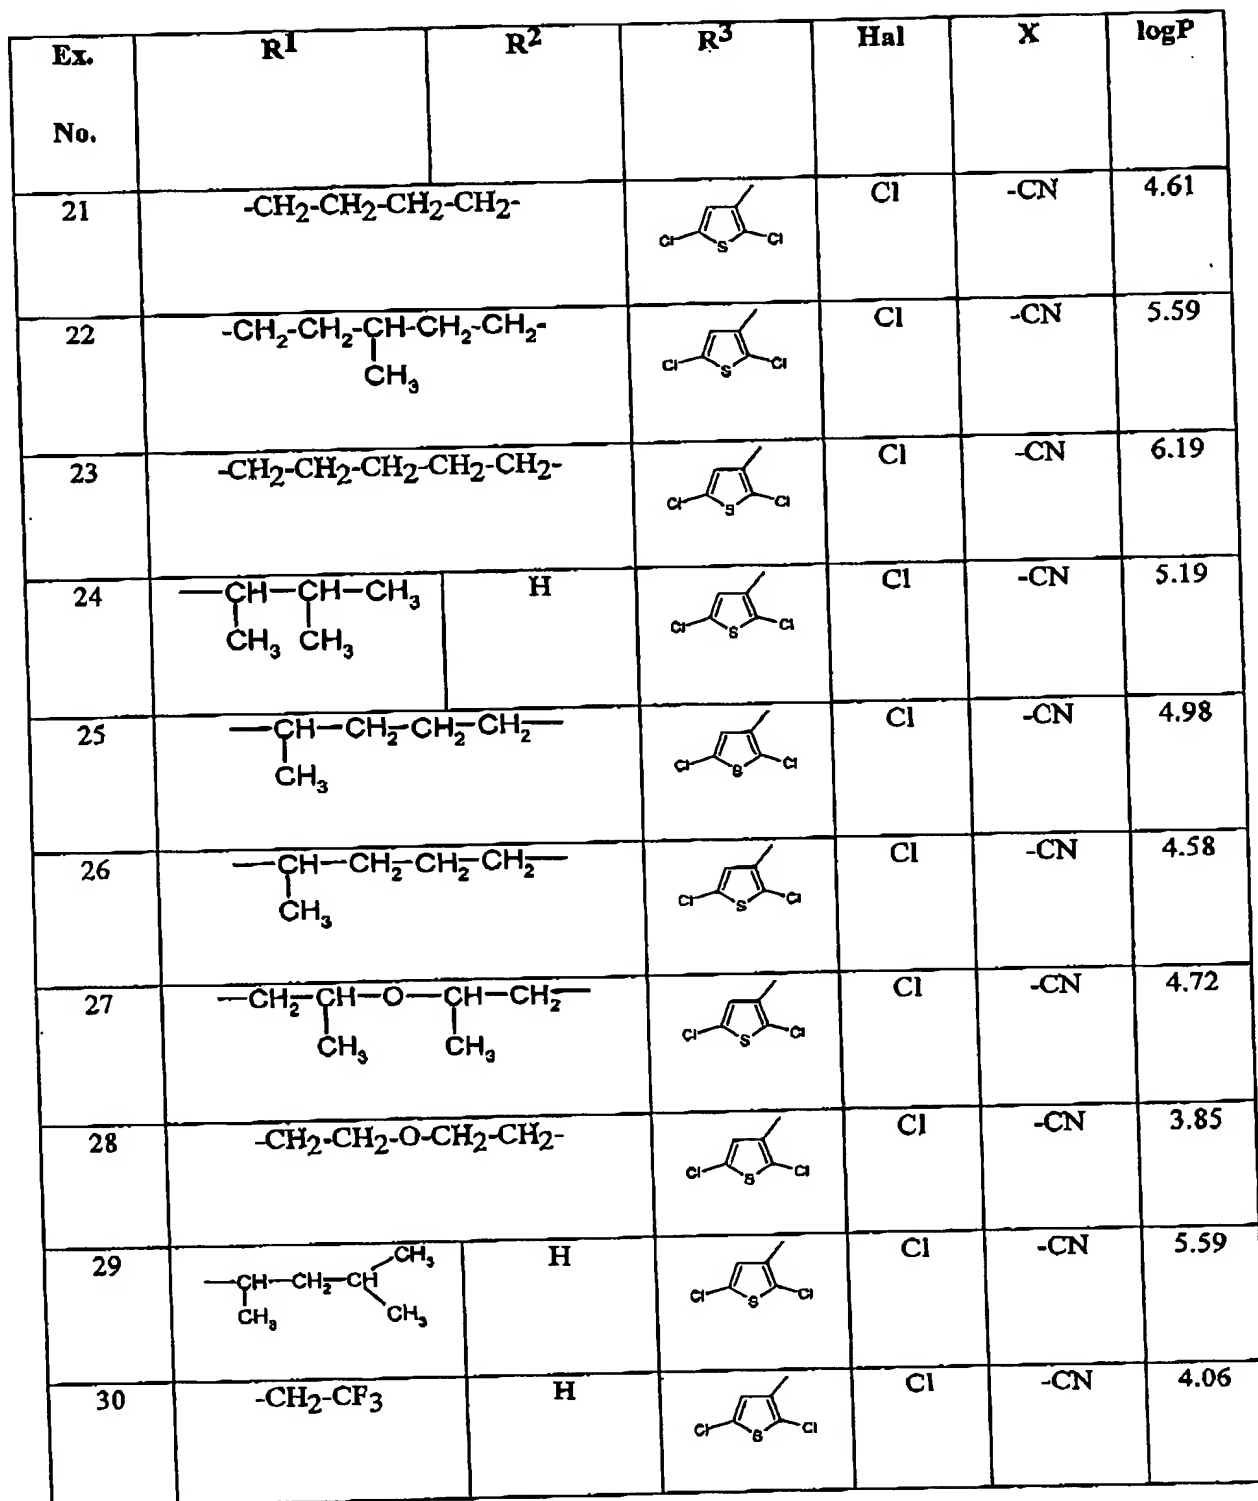 Ex. No. R¹ R² R³ Hal X logP
21 -CH₂-CH₂-CH₂-CH₂- Cl S Cl Cl -CN 4.61
22 -CH₂-CH₂-CH-CH₂-CH₂- Cl S Cl Cl -CN 5.59
CH₃
23 -CH₂-CH₂-CH₂-CH₂-CH₂- Cl S Cl Cl -CN 6.19
24 —CH—CH—CH₃ H Cl S Cl Cl -CN 5.19
CH₃ CH₃
25 —CH—CH₂-CH₂-CH₂— Cl S Cl Cl -CN 4.98
CH₃
26 —CH—CH₂-CH₂-CH₂— Cl S Cl Cl -CN 4.58
CH₃
27 —CH₂-CH—O—CH—CH₂— Cl S Cl Cl -CN 4.72
CH₃ CH₃
28 -CH₂-CH₂-O-CH₂-CH₂- Cl S Cl Cl -CN 3.85
29 —CH—CH₂—CH CH₃ H Cl S Cl Cl -CN 5.59
CH₃ CH₃
30 -CH₂-CF₃ H Cl S Cl Cl -CN 4.06